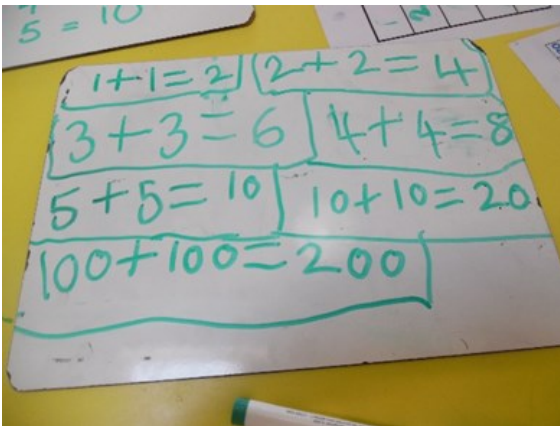 5 = 10
1+1=2 2+2=4
3+3=6 4+4=8
5+5=10 10+10=20
100+100=200